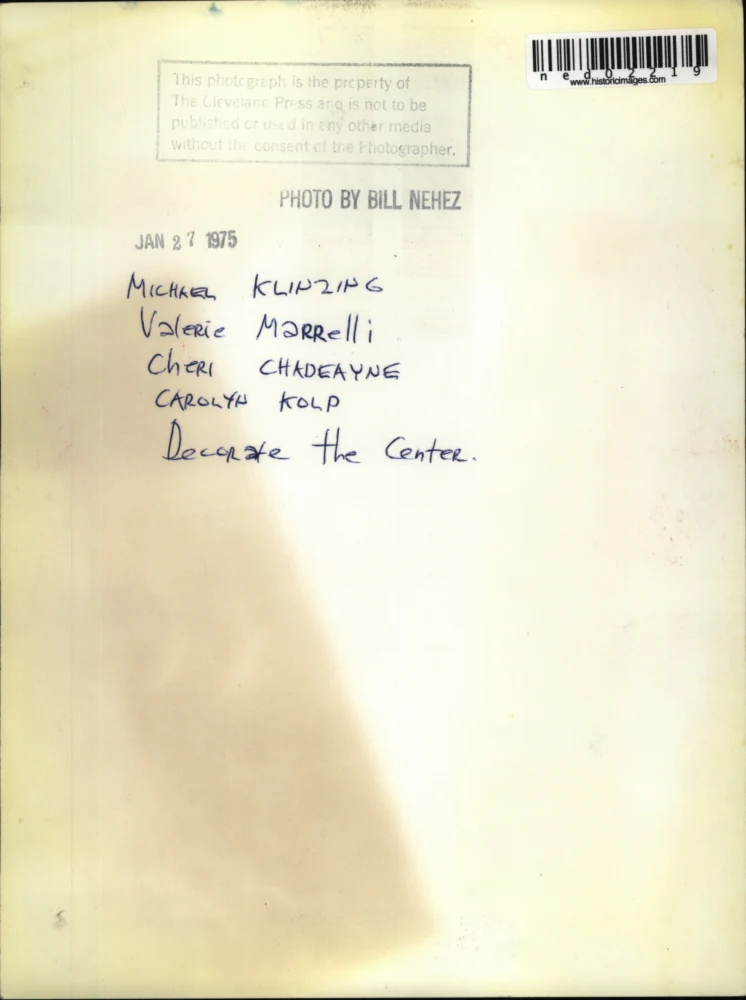 ned02219
www.historicimages.com
This photograph is the property of
The Cleveland Press and is not to be
published or used in any other media
without the consent of the Photographer.
PHOTO BY BILL NEHEZ
JAN 27 1975
MICHAEL KLINZING
Valerie Marrelli
Cheri CHADEAYNE
CAROLYN KOLP
Decorate the Center.